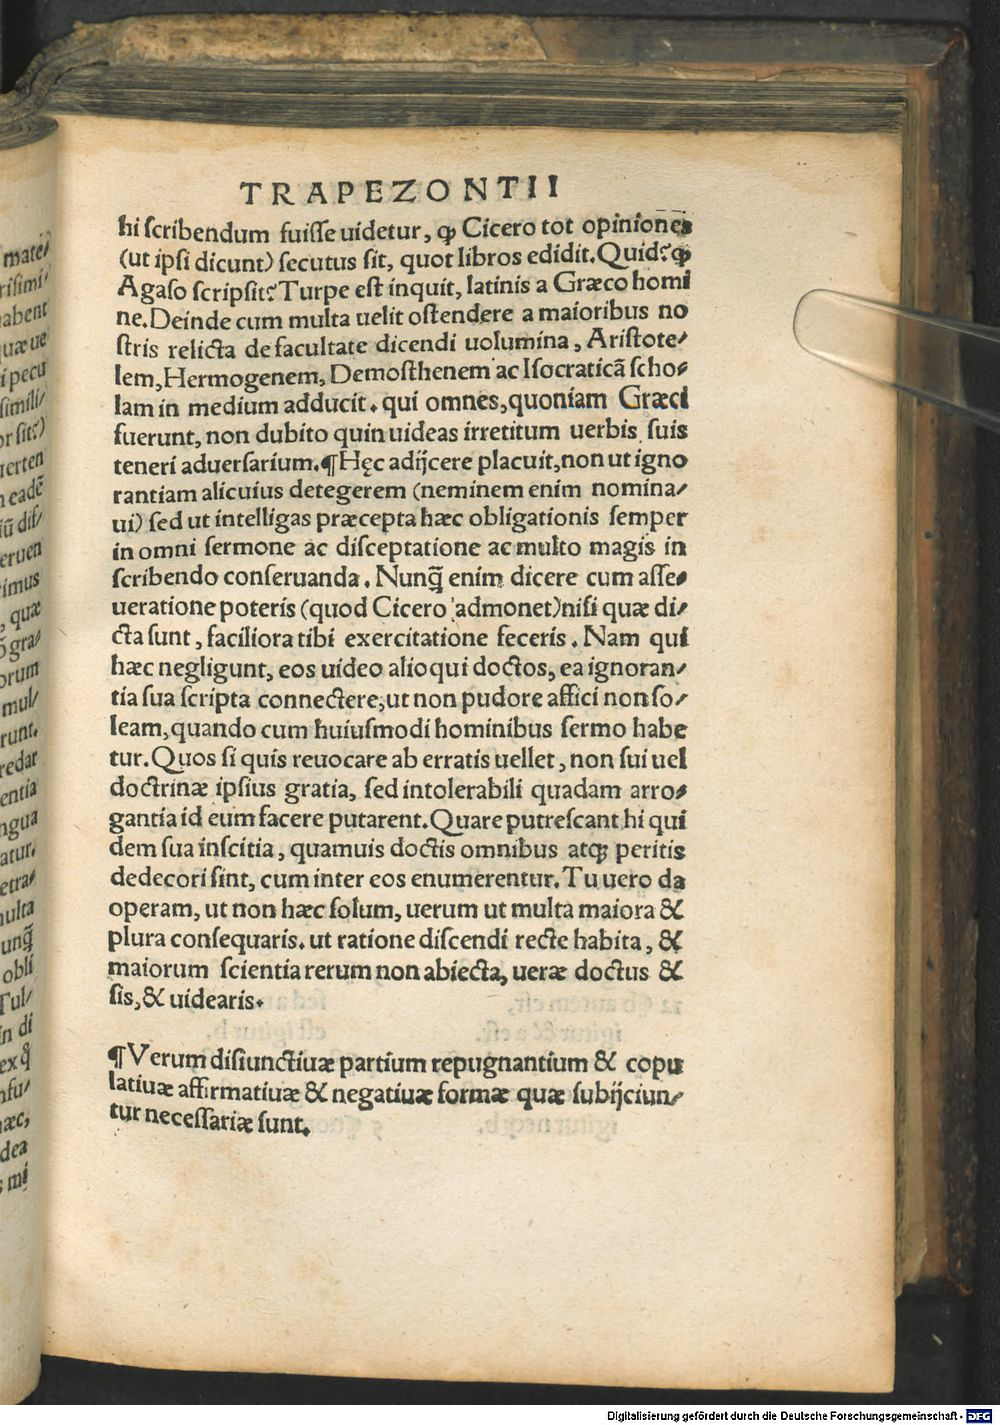 TRAPEZONTII
hi ſcribendum fuiſſe uidetur, ꝙ Cicero tot opiniones
(ut ipſi dicunt) ſecutus ſit, quot libros edidit. Quid? ꝙ
Agaſo ſcripſit? Turpe eſt inquit, latinis a Græco homi
ne. Deinde cum multa uelit oſtendere a maioribus no
ſtris relicta de facultate dicendi uolumina, Ariſtote/
lem, Hermogenem, Demoſthenem ac Iſocraticã ſcho/
lam in medium adducit. qui omnes, quoniam Græci
fuerunt, non dubito quin uideas irretitum uerbis ſuis
teneri aduerſarium. ¶ Hęc adijcere placuit, non ut igno
rantiam alicuius detegerem (neminem enim nomina/
ui) ſed ut intelligas præcepta hæc obligationis ſemper
in omni ſermone ac diſceptatione ac multo magis in
ſcribendo conſeruanda. Nunq̃ enim dicere cum aſſe/
ueratione poteris (quod Cicero admonet) niſi quæ di/
cta ſunt, faciliora tibi exercitatione feceris. Nam qui
hæc negligunt, eos uideo alioqui doctos, ea ignoran/
tia ſua ſcripta connectere, ut non pudore affici non ſo/
leam, quando cum huiuſmodi hominibus ſermo habe
tur. Quos ſi quis reuocare ab erratis uellet, non ſui uel
doctrinæ ipſius gratia, ſed intolerabili quadam arro/
gantia id eum facere putarent. Quare putreſcant hi qui
dem ſua inſcitia, quamuis doctis omnibus atqꝫ peritis
dedecori ſint, cum inter eos enumerentur. Tu uero da
operam, ut non hæc ſolum, uerum ut multa maiora &
plura conſequaris. ut ratione diſcendi recte habita, &
maiorum ſcientia rerum non abiecta, ueræ doctus &
ſis, & uidearis.
¶ Verum diſiunctiuæ partium repugnantium & copu
latiuæ affirmatiuæ & negatiuæ formæ quæ ſubijciun/
tur neceſſariæ ſunt.
mate/
riſimi/
habent
quæ ue
i pecu
ſimili/
or ſit?)
uerten
n eadẽ
iũ diſ/
eruen
rimus
, quæ
gra/
orum
mul/
runt.
redar
entia
ngua
atur.
etra/
multa
unq̃
obli
Tul/
in di
ex q̃
nfu/
hæc,
dea
s mi
Digitalisierung gefördert durch die Deutsche Forschungsgemeinschaft - DFG